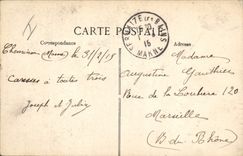 CARTE POSTALE
Correspondance
Adresse
MARNE
15
(Marne) le 31/2/15
Caresses à toutes trois
Joseph et Julia
Madame
Augustine Gauthier
Rue de la Loubière 120
Marseille
(B du Rhône)